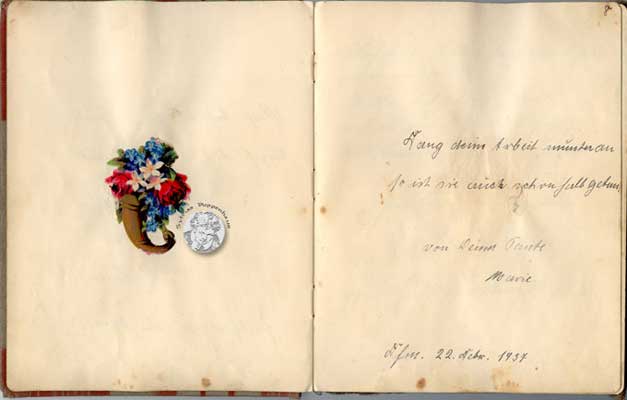 8
Puppenhaus
Fang deine Arbeit munter an
so ist sie auch schon halb getan
von Deiner Tante
Marie
Ffm. 22. Febr. 1937